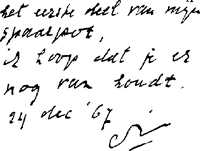 het eerste deel van mijn
spaarpot,
ik hoop dat je er
nog van houdt.
24 dec '67